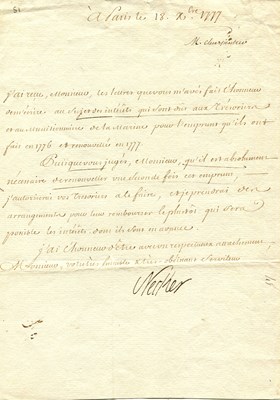 à Paris le 18. Xbre 1777
J'ai reçu, Monsieur, les lettres que vous m'avés fait l'honneur
de m'écrire au Sujet des intérêts qui sont dûs aux Trésoriers
et aux Munitionnaires de la Marine pour l'emprunt qu'ils ont
fait en 1776 et renouvellé en 1777.
Puisque vous jugés, Monsieur, qu'il est absolument
nécessaire de renouveller une seconde fois cet emprunt,
j'autoriserai vos Trésoriers à le faire, et je prendrai des
arrangements pour leur rembourser le plustôt qu'il sera
possible les intérêts dont ils sont en avance.
J'ai l'honneur d'être avec un respectueux attachement,
Monsieur, votre très humble & très obéissant Serviteur
Necker